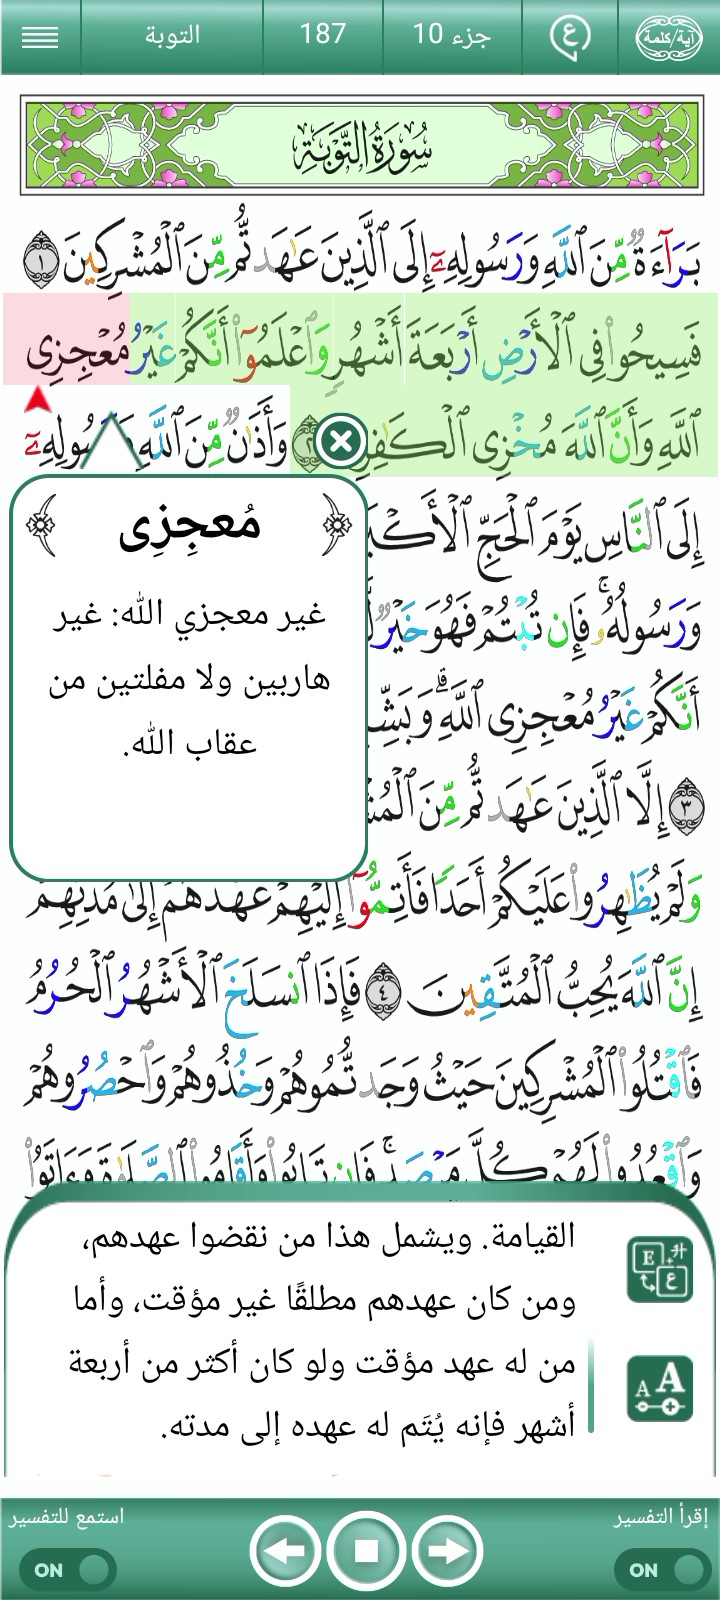 آية/كلمة
ع
جزء 10
187
التوبة
سُورَةُ التَّوْبَةِ
بَرَآءَةٌ مِّنَ ٱللَّهِ وَرَسُولِهِۦٓ إِلَى ٱلَّذِينَ عَٰهَدتُّم مِّنَ ٱلْمُشْرِكِينَ ١
فَسِيحُوا۟ فِى ٱلْأَرْضِ أَرْبَعَةَ أَشْهُرٍ وَٱعْلَمُوٓا۟ أَنَّكُمْ غَيْرُ مُعْجِزِى
ٱللَّهِ وَأَنَّ ٱللَّهَ مُخْزِى وَأَذَٰنٌ مِّنَ ٱللَّهِ
إِلَى ٱلنَّاسِ يَوْمَ ٱلْحَجِّ
وَرَسُولُهُۥ ۚ فَإِن تُبْتُمْ فَهُوَ خَيْرٌ
أَنَّكُمْ غَيْرُ مُعْجِزِى ٱللَّهِ ۗ
٣ إِلَّا ٱلَّذِينَ عَٰهَدتُّم مِّنَ
مُعجِزِى
غير معجزي الله: غير
هاربين ولا مفلتين من
عقاب الله.
وَلَمْ يُظَٰهِرُوا۟ عَلَيْكُمْ أَحَدًا فَأَتِمُّوٓا۟ إِلَيْهِمْ عَهْدَهُمْ إِلَىٰ مُدَّتِهِمْ
إِنَّ ٱللَّهَ يُحِبُّ ٱلْمُتَّقِينَ ٤ فَإِذَا ٱنسَلَخَ ٱلْأَشْهُرُ ٱلْحُرُمُ
فَٱقْتُلُوا۟ ٱلْمُشْرِكِينَ حَيْثُ وَجَدتُّمُوهُمْ وَخُذُوهُمْ وَٱحْصُرُوهُمْ
وَٱقْعُدُوا۟ لَهُمْ كُلَّ مَرْصَدٍ ۚ فَإِن تَابُوا۟ وَأَقَامُوا۟ ٱلصَّلَوٰةَ وَءَاتَوُا۟
القيامة. ويشمل هذا من نقضوا عهدهم،
ومن كان عهدهم مطلقًا غير مؤقت، وأما
من له عهد مؤقت ولو كان أكثر من أربعة
أشهر فإنه يُتَم له عهده إلى مدته.
إقرأ التفسير
استمع للتفسير
ON
ON